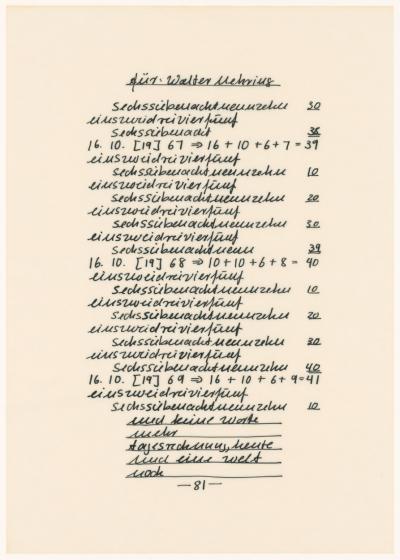 für: Walter Mehring
sechssiebenachtneunzehn 30
einszweidreivierfünf
sechssiebenacht 38
16. 10. [19] 67 ⇒ 16 + 10 + 6 + 7 = 39
einszweidreivierfünf
sechssiebenachtneunzehn 10
einszweidreivierfünf
sechssiebenachtneunzehn 20
einszweidreivierfünf
sechssiebenachtneunzehn 30
einszweidreivierfünf
sechssiebenachtneun 39
16. 10. [19] 68 ⇒ 16 + 10 + 6 + 8 = 40
einszweidreivierfünf
sechssiebenachtneunzehn 10
einszweidreivierfünf
sechssiebenachtneunzehn 20
einszweidreivierfünf
sechssiebenachtneunzehn 30
einszweidreivierfünf
sechssiebenachtneunzehn 40
16. 10. [19] 69 ⇒ 16 + 10 + 6 + 9 = 41
einszweidreivierfünf
sechssiebenachtneunzehn 10
und keine Worte
mehr
tagesrechnung, heute
und eine welt
noch
— 81 —